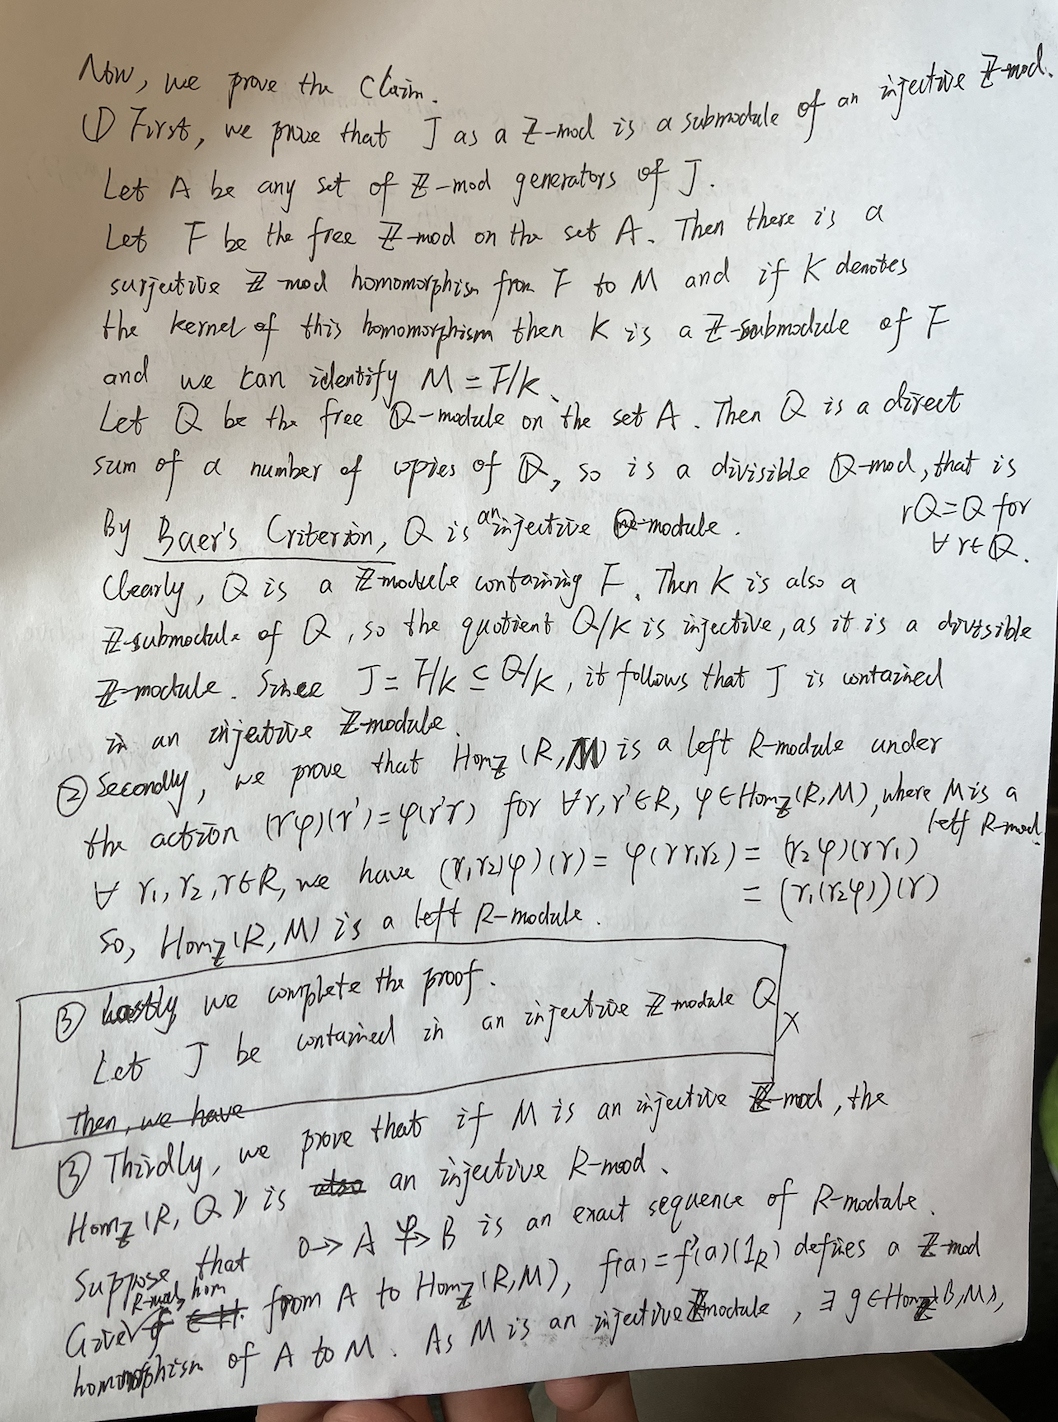 Now, we prove the Claim.
① First, we prove that J as a Z-mod is a submodule of an injective Z-mod.
Let A be any set of Z-mod generators of J.
Let F be the free Z-mod on the set A. Then there is a
surjective Z-mod homomorphism from F to M and if K denotes
the kernel of this homomorphism then K is a Z-submodule of F
and we can identify M = F/K.
Let Q be the free Q-module on the set A. Then Q is a direct
sum of a number of copies of Q, so is a divisible Q-mod, that is
rQ=Q for
∀ r∈Q.
By Baer's Criterion, Q is an injective Q-module.
Clearly, Q is a Z module containing F. Then K is also a
Z-submodule of Q, so the quotient Q/K is injective, as it is a divisible
Z-module. Since J = F/K ⊆ Q/K, it follows that J is contained
in an injective Z-module.
② Secondly, we prove that Hom_Z(R,M) is a left R-module under
the action (rφ)(r')=φ(r'r) for ∀r,r'∈R, φ∈Hom_Z(R,M), where M is a
left R-mod.
∀ r₁,r₂,r∈R, we have (r₁r₂)φ)(r) = φ(rr₁r₂) = (r₂φ)(rr₁)
= (r₁(r₂φ))(r)
So, Hom_Z(R,M) is a left R-module.
③ Lastly we complete the proof.
Let J be contained in an injective Z module Q
X
Then, we have
③ Thirdly, we prove that if M is an injective Z-mod, the
Hom_Z(R,Q) is also an injective R-mod.
Suppose that 0→A →ψ B is an exact sequence of R-module.
R-mod hom
Given f from A to Hom_Z(R,M), f(a)=f'(a)(1_R) defines a Z-mod
homomorphism of A to M. As M is an injective Z module, ∃ g∈Hom_Z(B,M),